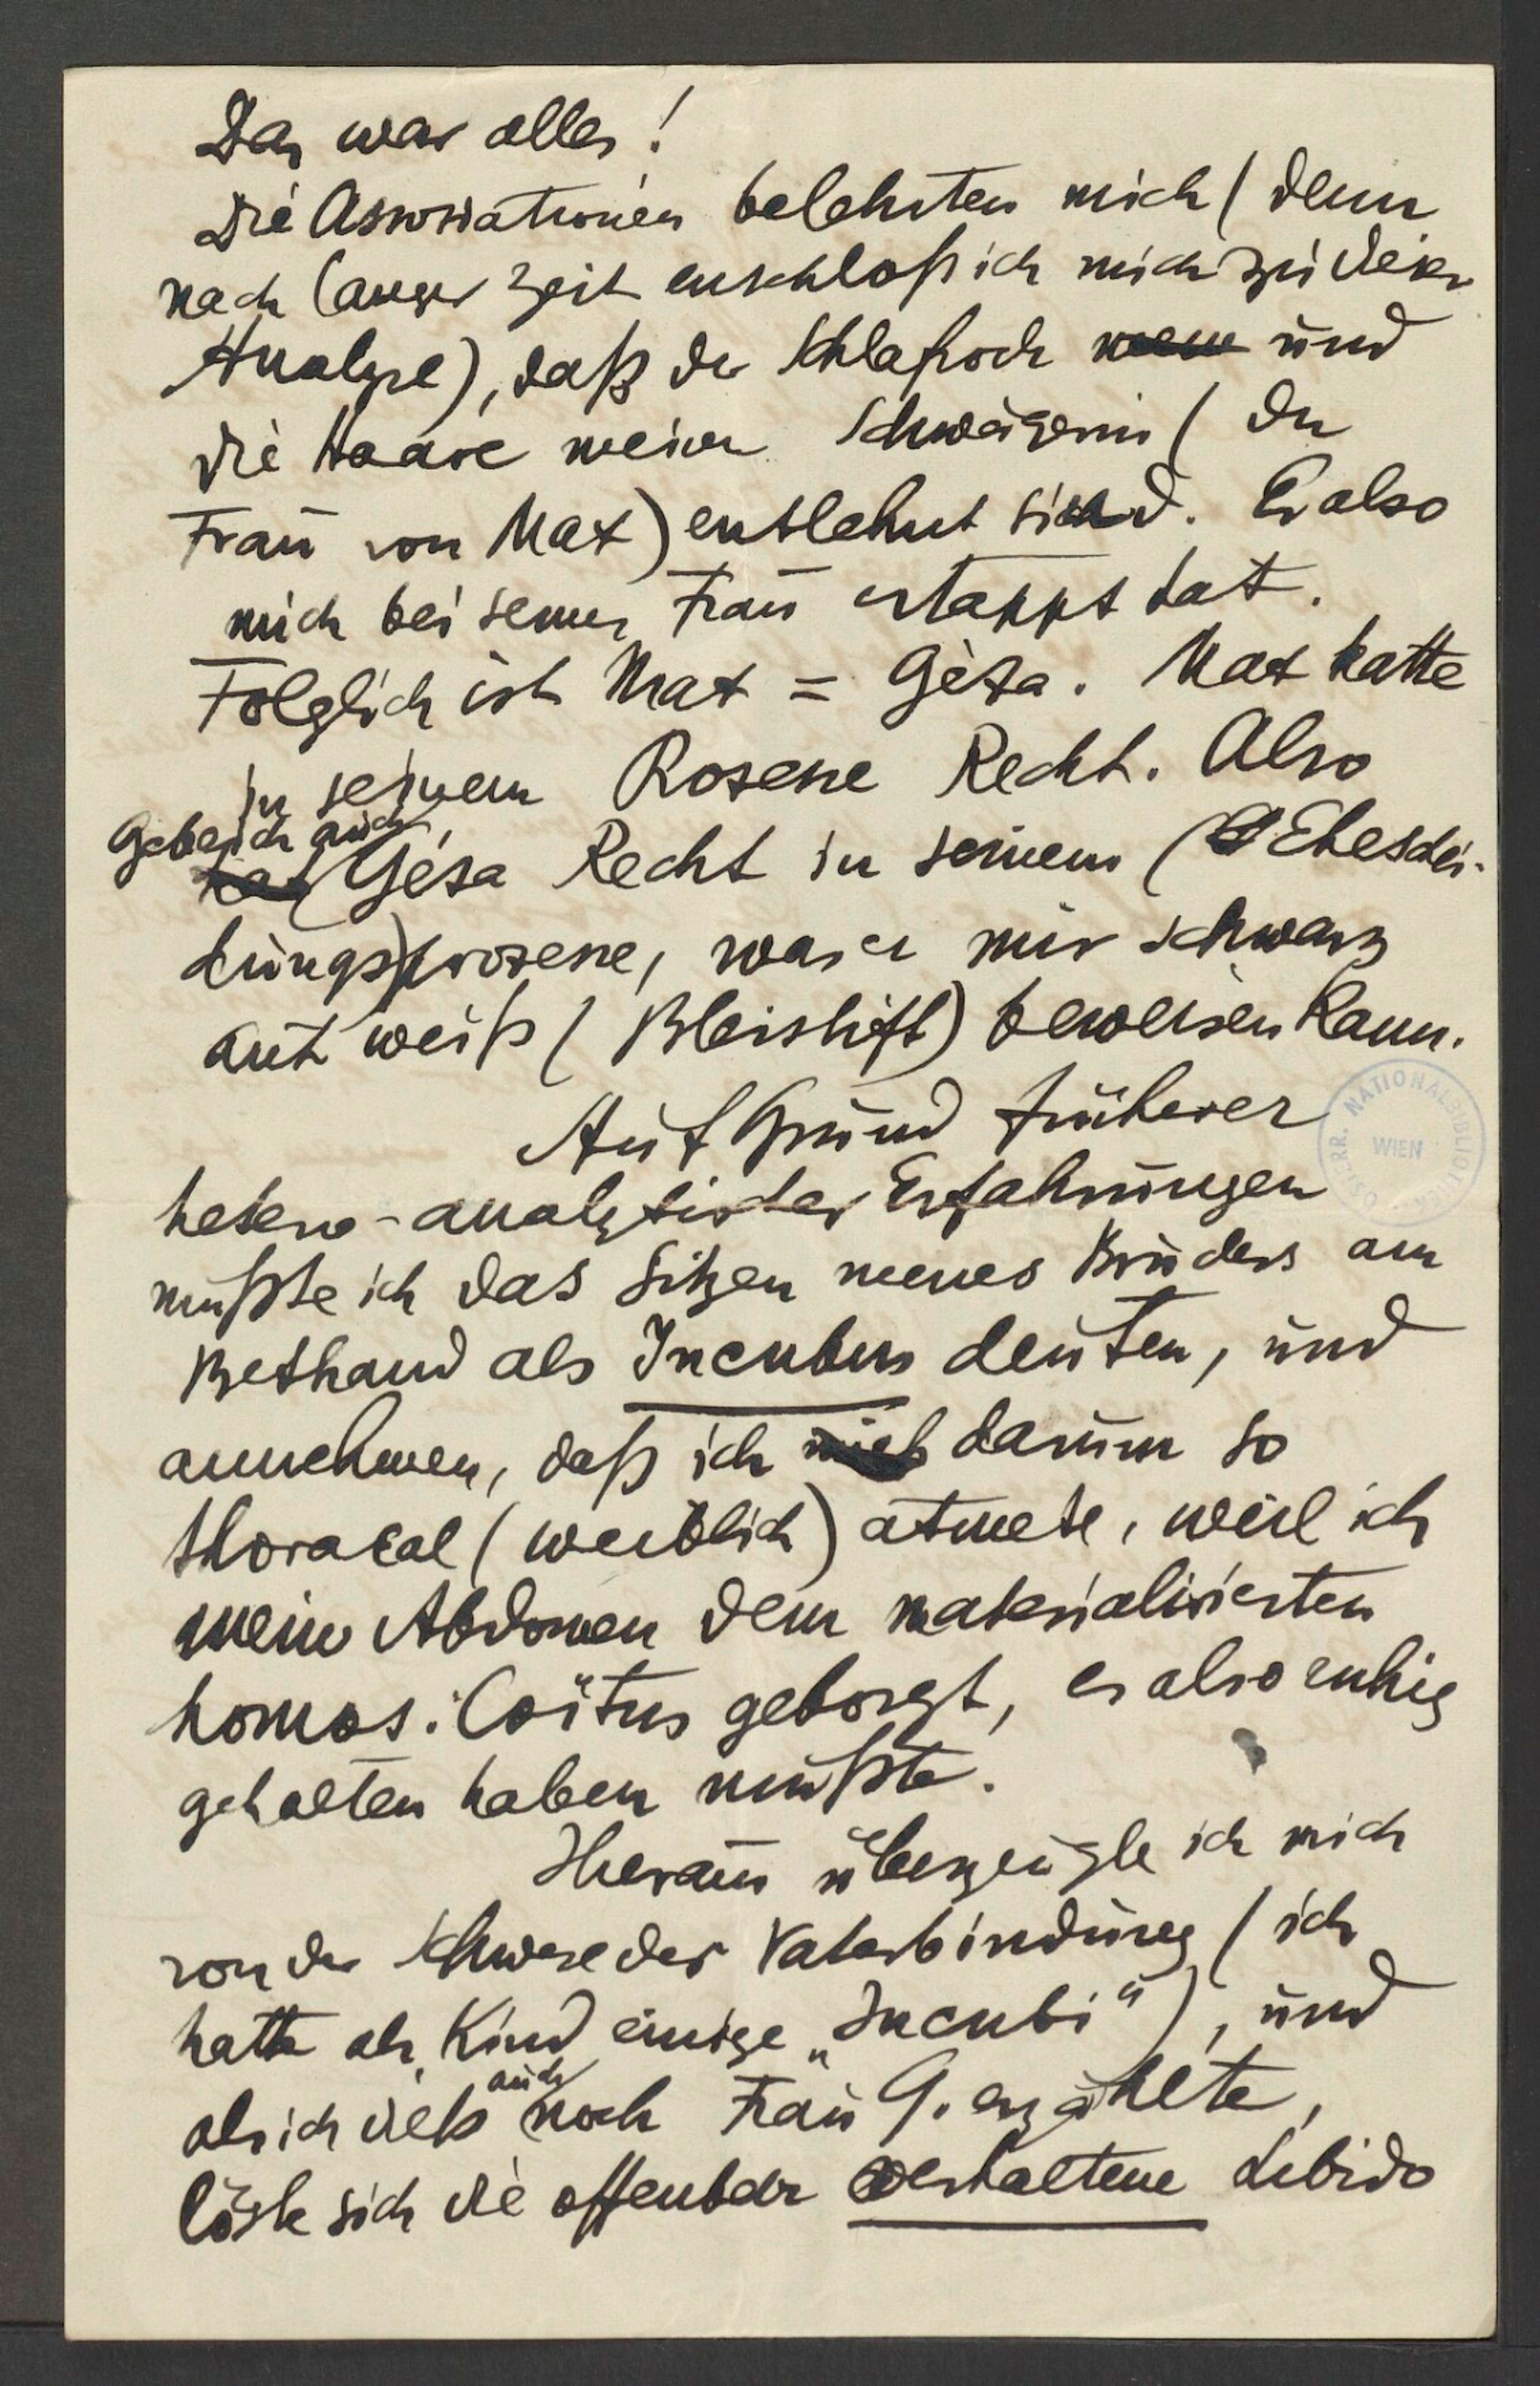 Das war alles!
Die Associationen belehrten mich (denn
nach langer Zeit enschloß ich mich zu dieser
Analyse), daß der Schlafrock und
die Haare meiner Schwägerin (der
Frau von Max) entlehnt sind. Er also
mich bei seiner Frau ertappt hat.
Folglich ist Max = Géza. Max hatte
in seinem Prozesse Recht. Also
gebe ich auch
Géza Recht in seinem (Eheschei-
dungs)prozesse, was er mir schwarz
auf weiß (Bleistift) beweisen kann.
Auf Grund früherer
hetero-analytischer Erfahrungen
mußte ich das Sitzen meines Bruders am
Bettrand als Incubus deuten, und
annehmen, daß ich darum so
thoracal (weiblich) atmete, weil ich
mein Abdomen dem materialisierten
homos. Coitus geborgt, es also ruhig
gehalten haben mußte.
Hieraus überzeugte ich mich
von der Schwere der Vaterbindung (ich
hatte als Kind einige „Incubi“), und
als ich dies auch noch Frau G. erzählte,
löste sich die offenbar verhaltene Libido
ÖSTERR. NATIONALBIBLIOTHEK
WIEN